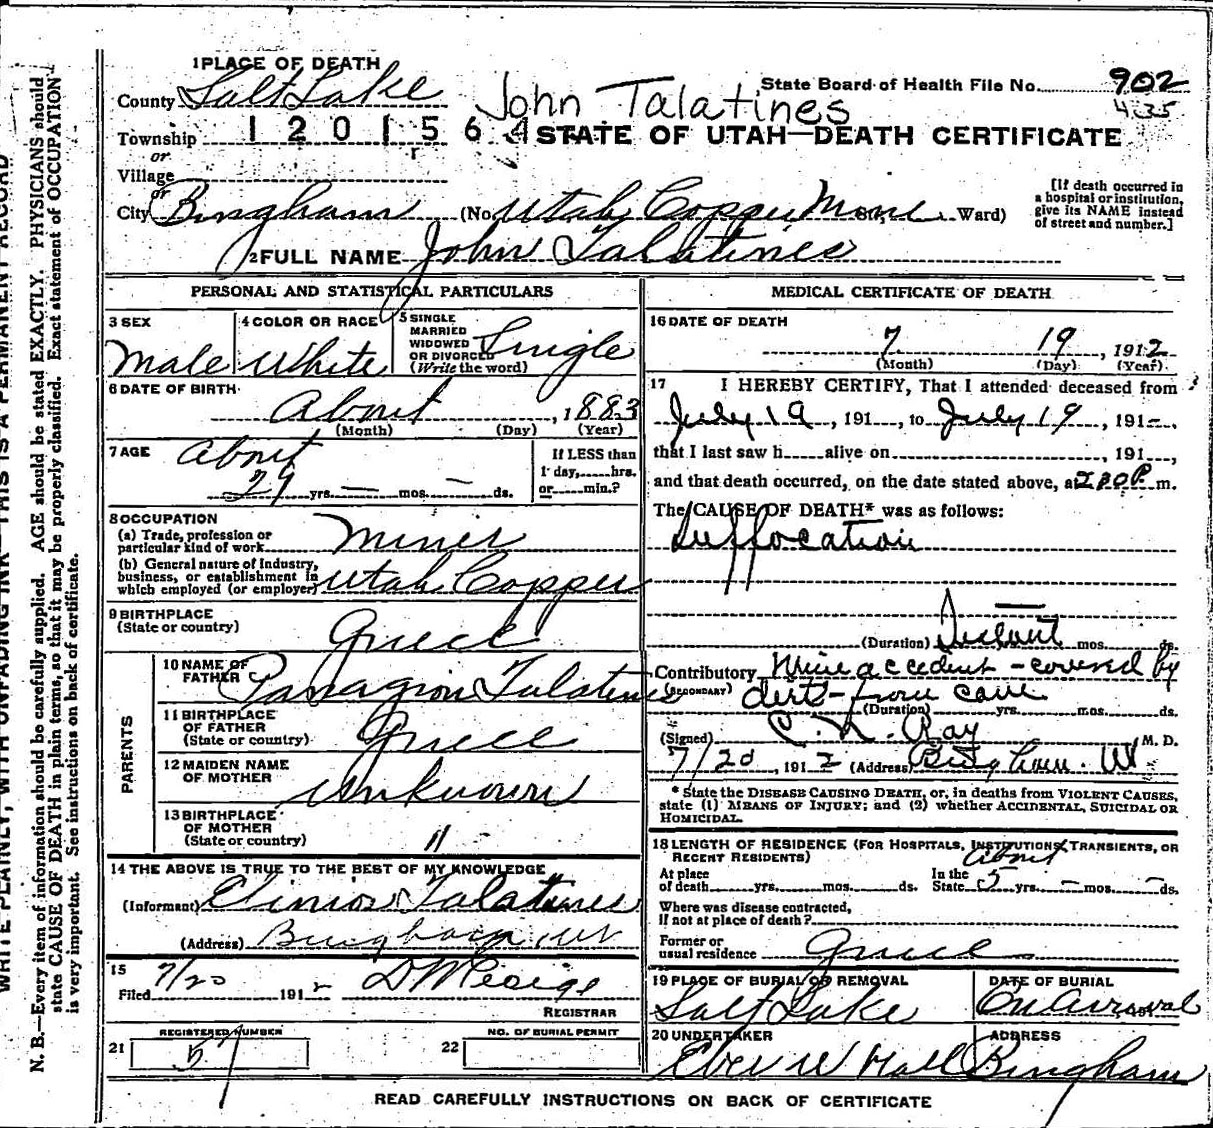 1 PLACE OF DEATH
County Salt Lake
John Talatines
State Board of Health File No. 902
435
Township 1 2 0 1 5 6
or
Village
STATE OF UTAH—DEATH CERTIFICATE
or
City Bingham (No. Utah Copper Mine St. Ward)
[If death occurred in
a hospital or institution,
give its NAME instead
of street and number.]
2 FULL NAME John Talatines
PERSONAL AND STATISTICAL PARTICULARS
3 SEX
Male
4 COLOR OR RACE
White
5 SINGLE
MARRIED
WIDOWED
OR DIVORCED
(Write the word)
Single
6 DATE OF BIRTH
About , 1883
(Month) (Day) (Year)
7 AGE
About
29 yrs. — mos. — ds.
If LESS than
1 day, hrs.
or min.?
8 OCCUPATION
(a) Trade, profession or
particular kind of work Miner
(b) General nature of Industry,
business, or establishment in
which employed (or employer) Utah Copper
9 BIRTHPLACE
(State or country)
Greece
PARENTS
10 NAME OF
FATHER
Talatines
11 BIRTHPLACE
OF FATHER
(State or country)
Greece
12 MAIDEN NAME
OF MOTHER
Unknown
13 BIRTHPLACE
OF MOTHER
(State or country)
"
14 THE ABOVE IS TRUE TO THE BEST OF MY KNOWLEDGE
(Informant) Talatines
(Address) Bingham, Ut
15
Filed 7/20 1912
REGISTRAR
REGISTERED NUMBER
21 57
NO. OF BURIAL PERMIT
22
MEDICAL CERTIFICATE OF DEATH
16 DATE OF DEATH
7 19 , 1912
(Month) (Day) (Year)
17 I HEREBY CERTIFY, That I attended deceased from
July 19 , 191 , to July 19 , 191-.
that I last saw h alive on , 191 ,
and that death occurred, on the date stated above, at 2 30 P. m.
The CAUSE OF DEATH* was as follows:
Suffocation
(Duration) Instant mos. ds.
Contributory Mine accident - covered by
(SECONDARY) dirt - from cave
(Duration) yrs. mos. ds.
(Signed) Ray M. D.
7/20 , 1912 (Address) Bingham. Ut
* State the DISEASE CAUSING DEATH, or, in deaths from VIOLENT CAUSES,
state (1) MEANS OF INJURY; and (2) whether ACCIDENTAL, SUICIDAL OR
HOMICIDAL.
18 LENGTH OF RESIDENCE (FOR HOSPITALS, INSTITUTIONS, TRANSIENTS, OR
RECENT RESIDENTS)
About
At place
of death yrs. mos. ds.
In the
State 5 yrs. — mos. — ds.
Where was disease contracted,
If not at place of death?
Former or
usual residence Greece
19 PLACE OF BURIAL OR REMOVAL
Salt Lake
DATE OF BURIAL
On Arrival
20 UNDERTAKER
Eber W Hall
ADDRESS
Bingham
READ CAREFULLY INSTRUCTIONS ON BACK OF CERTIFICATE
WRITE PLAINLY, WITH UNFADING INK—THIS IS A PERMANENT RECORD
N. B.—Every item of information should be carefully supplied. AGE should be stated EXACTLY. PHYSICIANS should
state CAUSE OF DEATH in plain terms, so that it may be properly classified. Exact statement of OCCUPATION
is very important. See instructions on back of certificate.